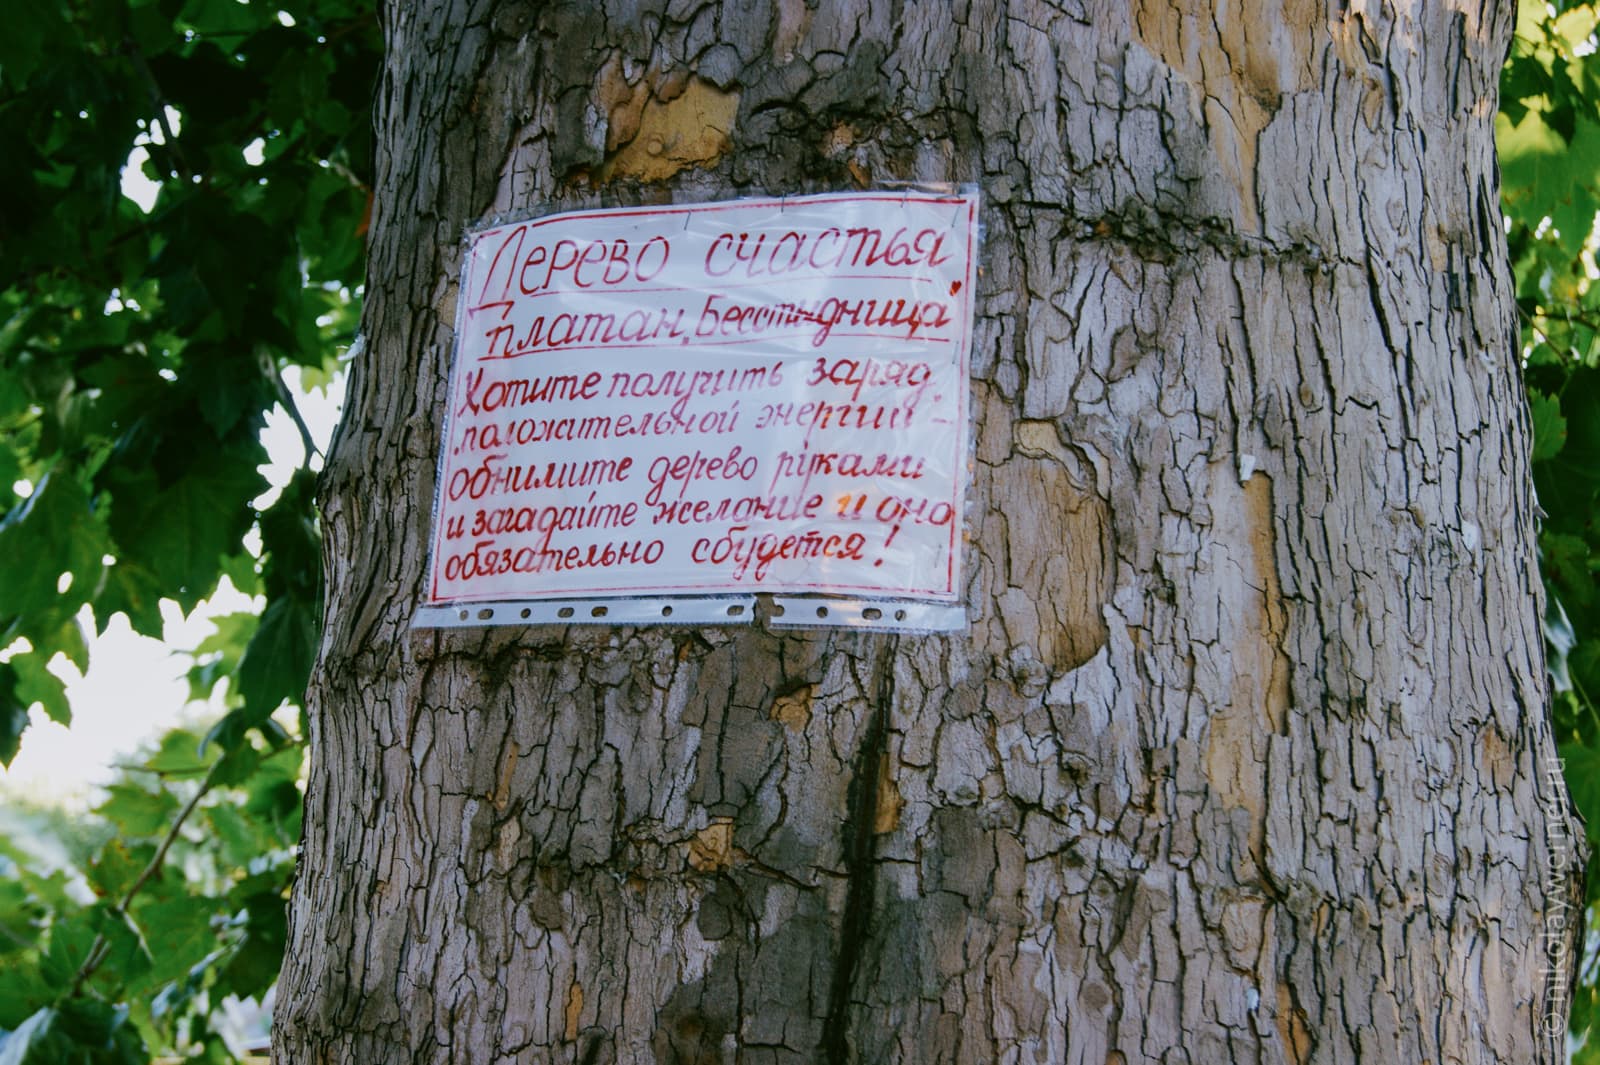 Дерево счастья
платан. Бесстыдница
Хотите получить заряд
положительной энергии -
обнимите дерево руками
и загадайте желание и оно
обязательно сбудется!
© nikolaywerner.ru